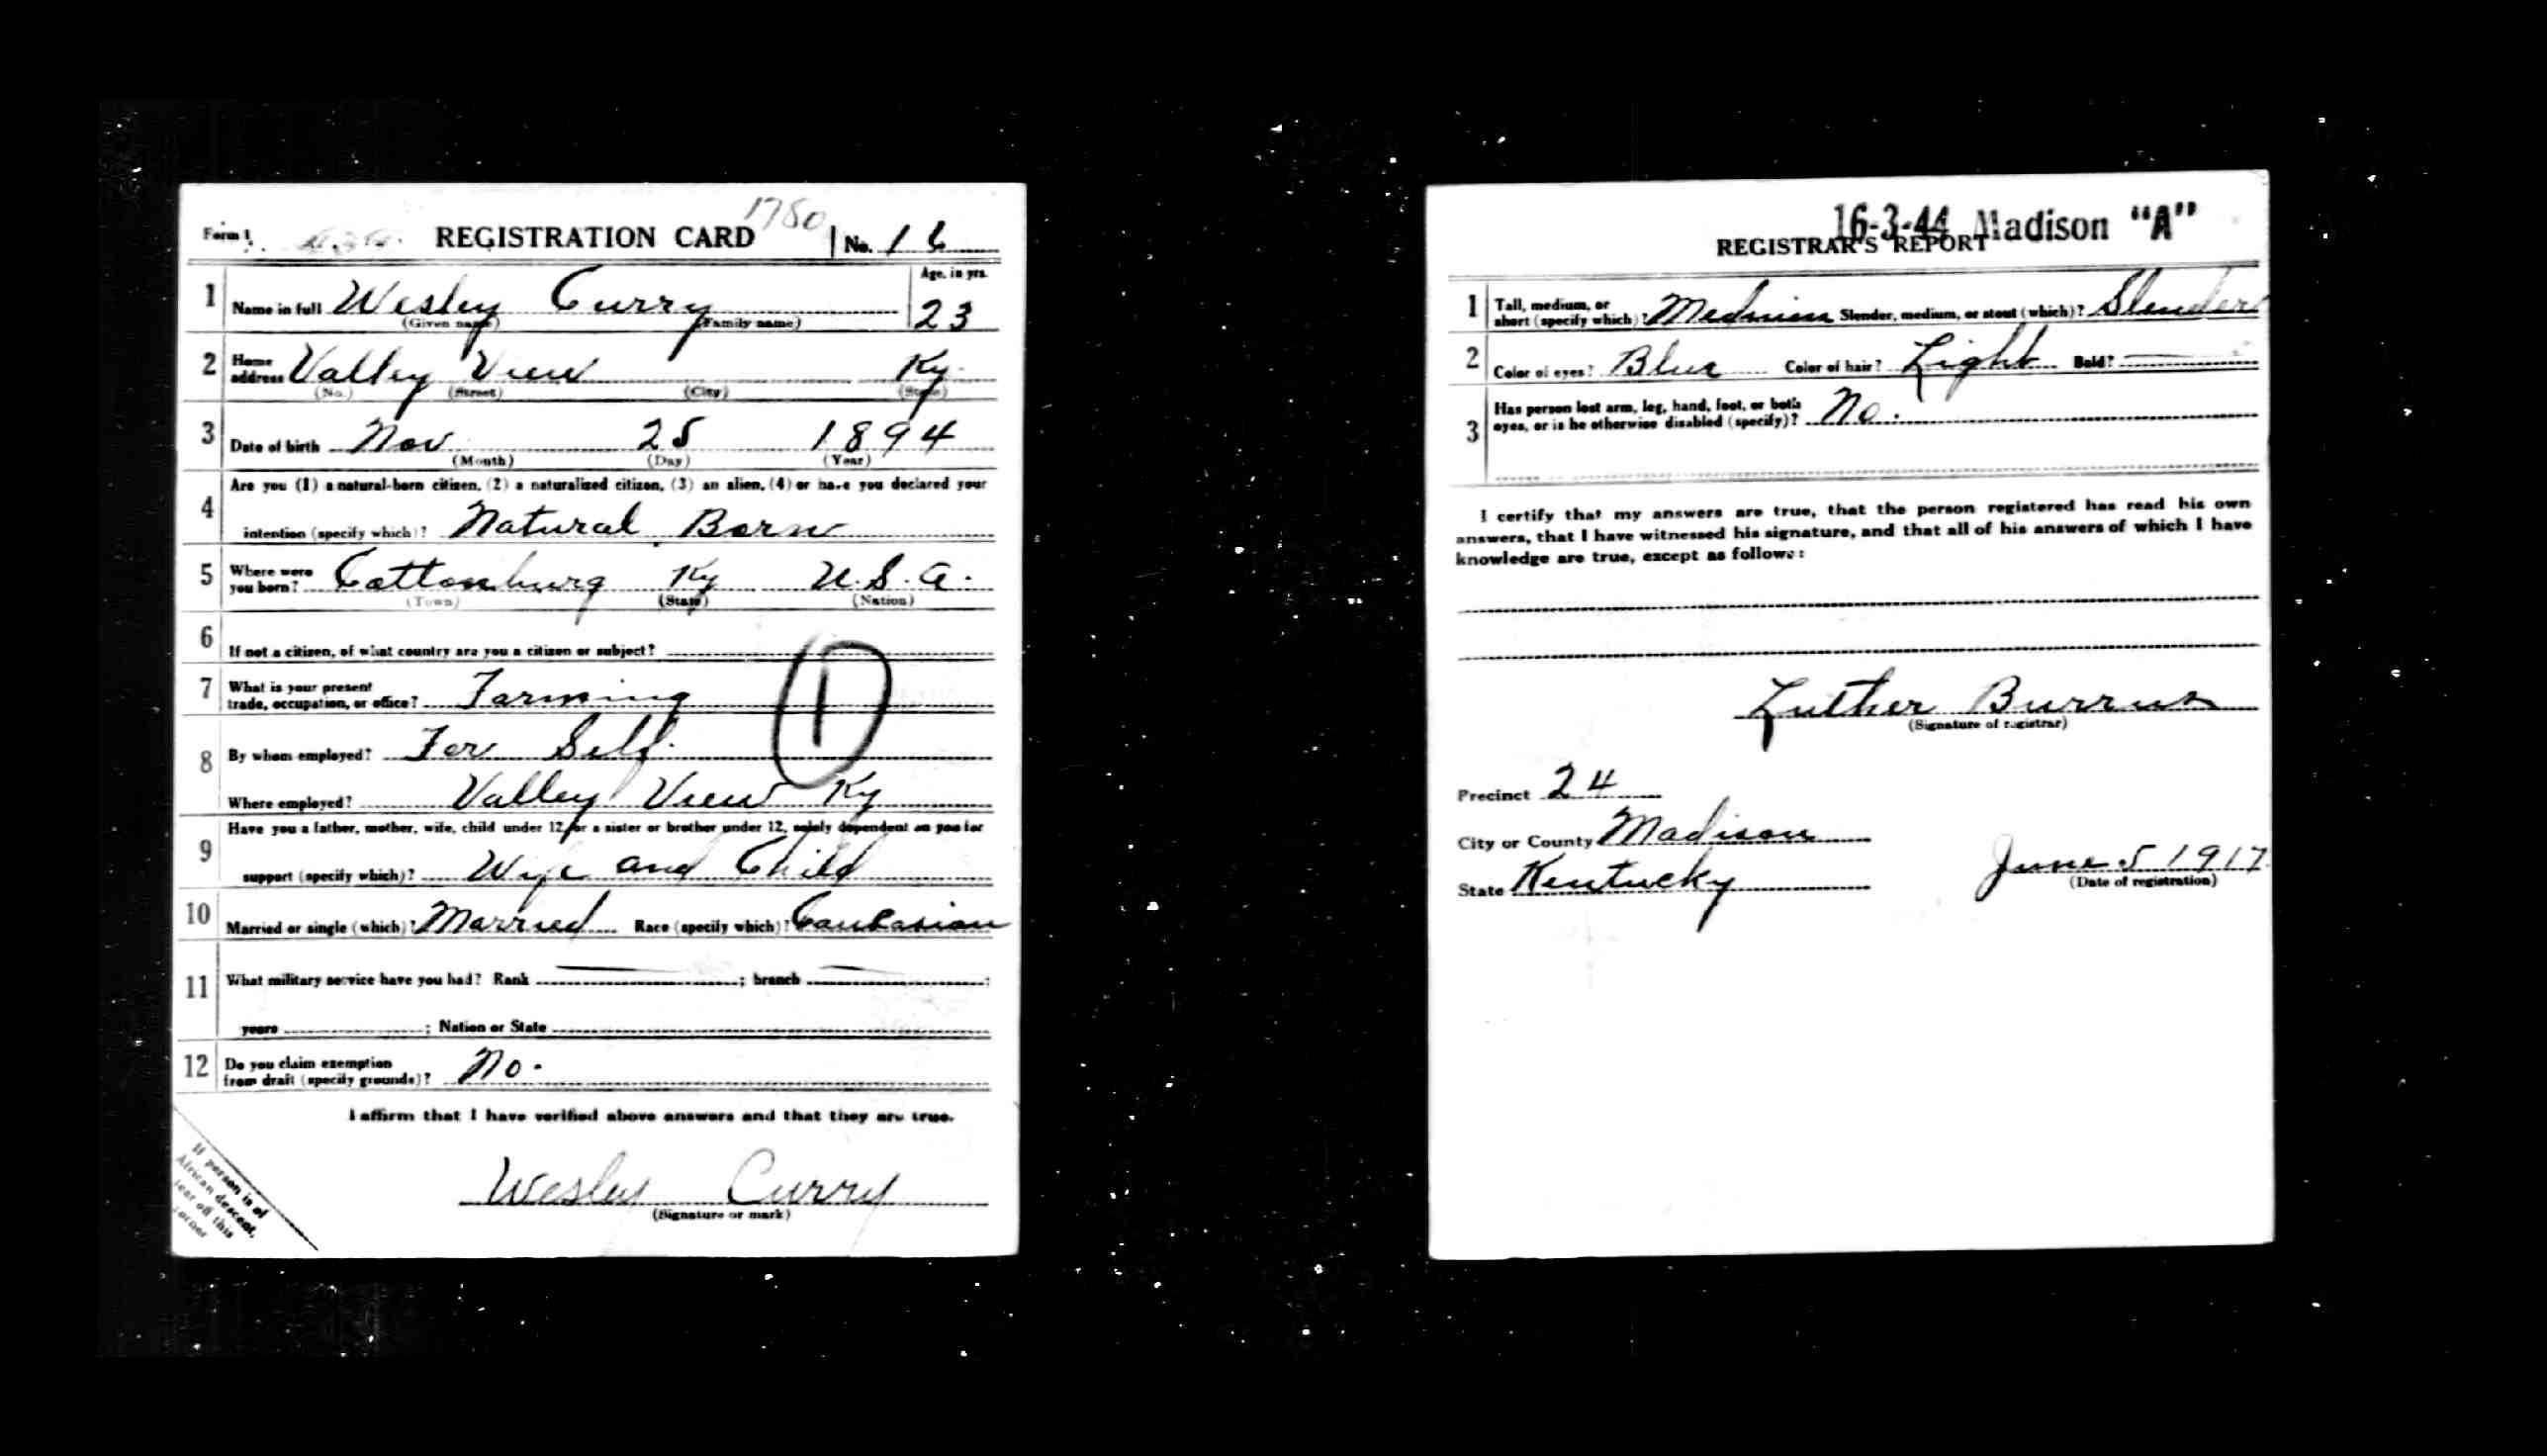 1780
Form 1 REGISTRATION CARD No. 16
1 Name in full Wesley Curry Age, in yrs. 23
(Given name) (Family name)
2 Home address Valley View Ky.
(No.) (Street) (City) (State)
3 Date of birth Nov 25 1894
(Month) (Day) (Year)
4 Are you (1) a natural-born citizen, (2) a naturalized citizen, (3) an alien, (4) or have you declared your
intention (specify which)? Natural Born
5 Where were you born? Cottonburg Ky U.S.A.
(Town) (State) (Nation)
6 If not a citizen, of what country are you a citizen or subject?
7 What is your present trade, occupation, or office? Farming
1
8 By whom employed? For Self.
Where employed? Valley View Ky
9 Have you a father, mother, wife, child under 12, or a sister or brother under 12, solely dependent on you for
support (specify which)? Wife and Child
10 Married or single (which)? Married Race (specify which)? Caucasian
11 What military service have you had? Rank ; branch ;
years ; Nation or State
12 Do you claim exemption from draft (specify grounds)? No.
I affirm that I have verified above answers and that they are true.
Wesley Curry
(Signature or mark)
If person is of
African descent,
tear off this
corner
16-3-44 Madison "A"
REGISTRAR'S REPORT
1 Tall, medium, or short (specify which)? Medium Slender, medium, or stout (which)? Slender
2 Color of eyes? Blue Color of hair? Light Bald?
3 Has person lost arm, leg, hand, foot, or both
eyes, or is he otherwise disabled (specify)? No.
I certify that my answers are true, that the person registered has read his own
answers, that I have witnessed his signature, and that all of his answers of which I have
knowledge are true, except as follows:
Luther Burrus
(Signature of registrar)
Precinct 24
City or County Madison
State Kentucky June 5 1917
(Date of registration)